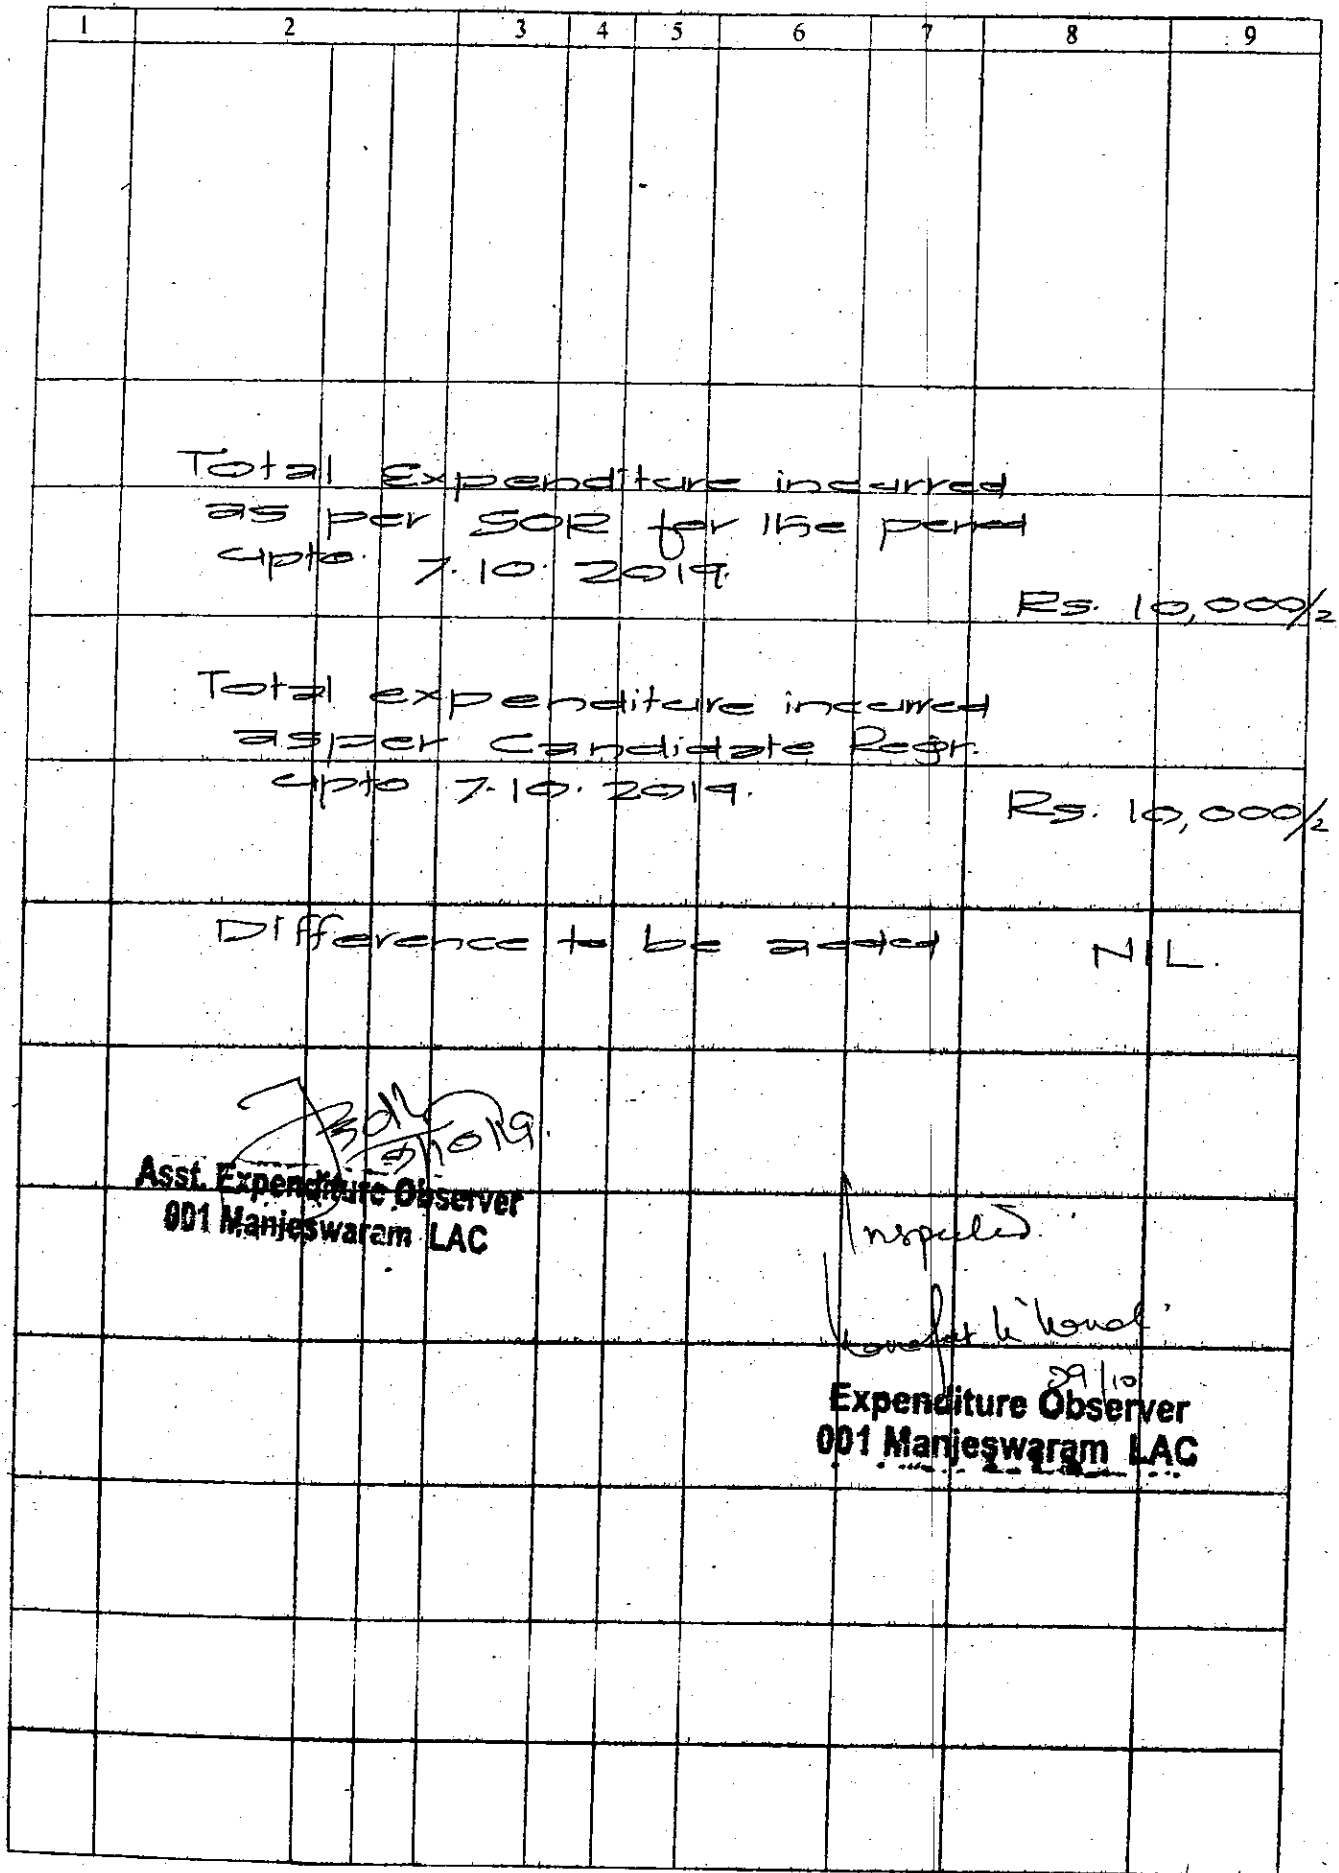 1 2 3 4 5 6 7 8 9
Total Expenditure incurred
as per SOR for the period
upto 7.10.2019.
Rs. 10,000/-
Total expenditure incurred
as per Candidate Regr.
upto 7.10.2019.
Rs. 10,000/-
Difference to be added NIL.
Asst. Expenditure Observer
001 Manjeswaram LAC
Inspected
09/10
Expenditure Observer
001 Manjeswaram LAC